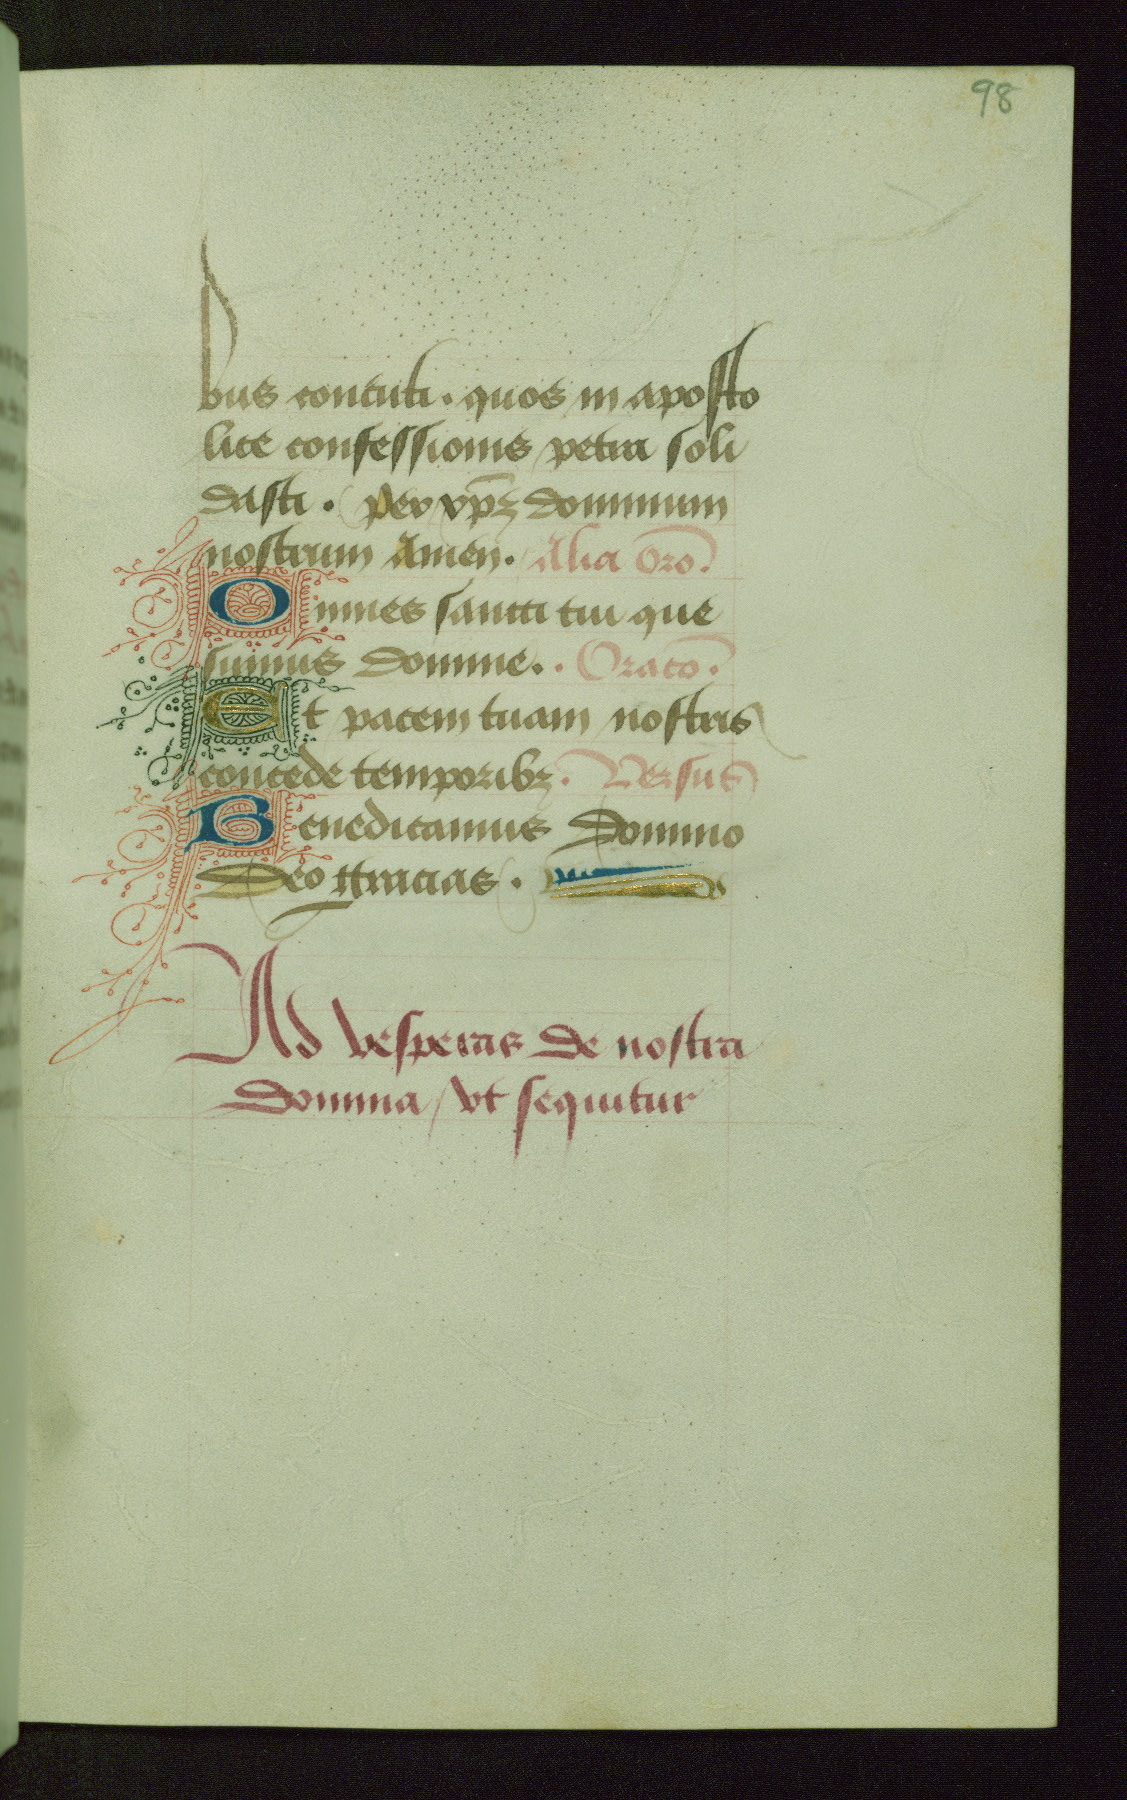 98
bus contuti. quos in aposto
lice confessionis petra soli
dasti. per xp̄ꝫ dominum
nostrum Amen. Alia Orō.
Omnes sancti tui que
sumus domine.. Oracō.
Et pacem tuam nostris
concede temporibꝫ. Versus
Benedicamus Domino
Deo gracias.
Ad vesperas de nostra
domina / vt sequitur